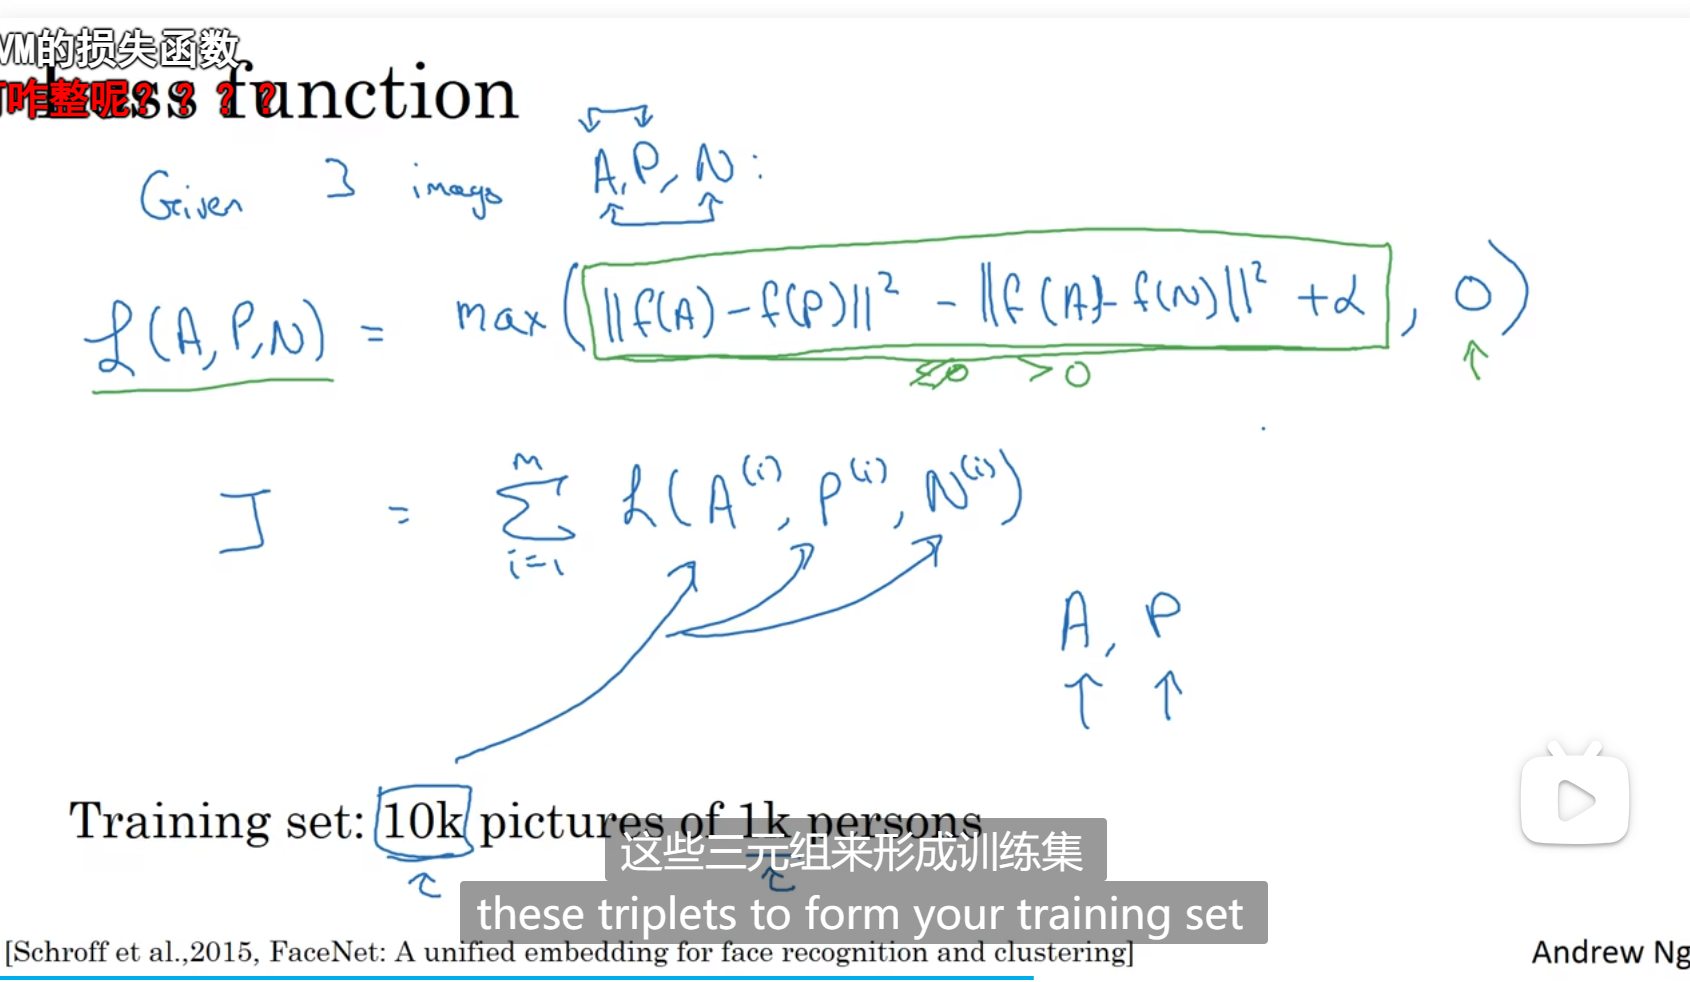 VM的损失函数
咋整呢？？？？
Loss function
Given 3 images A, P, N:
ℒ(A, P, N) = max(||f(A) - f(P)||² - ||f(A) - f(N)||² + α, 0)
≤0 >0
J = Σ_{i=1}^{M} ℒ(A^{(i)}, P^{(i)}, N^{(i)})
A, P
Training set: 10k pictures of 1k persons
这些三元组来形成训练集
these triplets to form your training set
[Schroff et al.,2015, FaceNet: A unified embedding for face recognition and clustering]
Andrew Ng